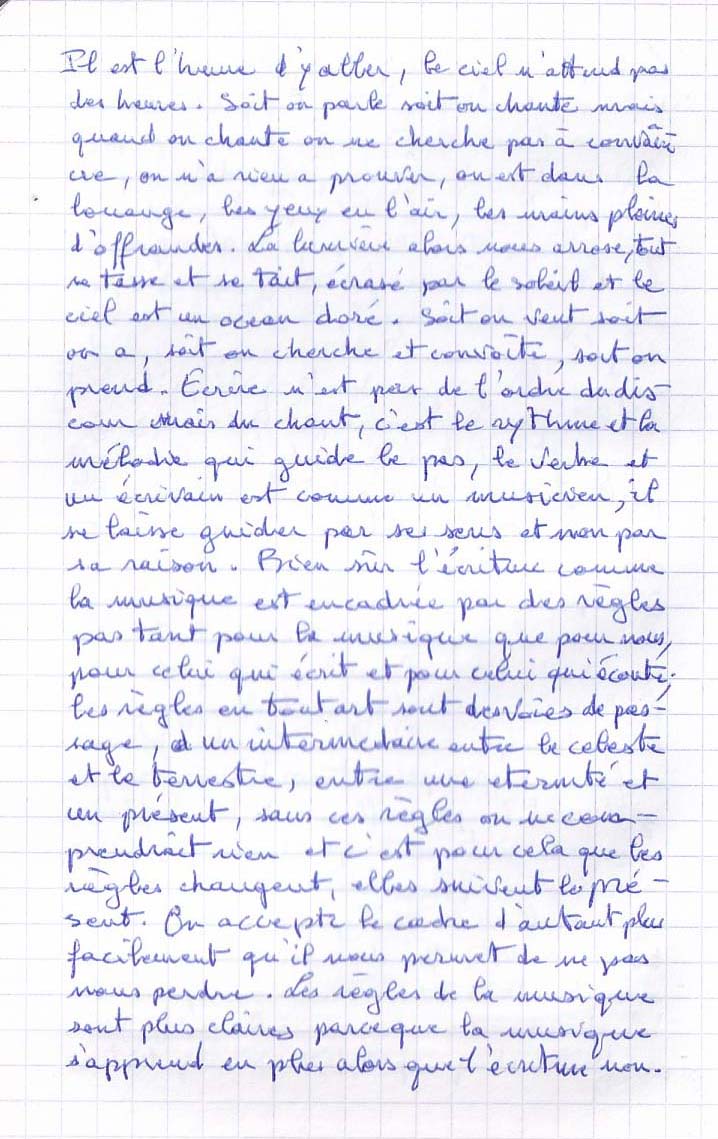 Il est l'heure d'y aller, le ciel n'attend pas
des heures. Soit on parle soit on chante mais
quand on chante on ne cherche pas à convain
cre, on n'a rien a prouver, on est dans la
louange, les yeux en l'air, les mains pleines
d'offrandes. La lumière alors nous arrose, tout
se tasse et se tait, écrasé par le soleil et le
ciel est un ocean doré. Soit on veut soit
on a, soit on cherche et convoite, soit on
prend. Ecrire n'est pas de l'ordre du dis
cour mais du chant, c'est le rythme et la
mélodie qui guide le pas, le verbe et
un écrivain est comme un musicien, il
se laisse guider par ses sens et non par
sa raison. Bien sûr l'écriture comme
la musique est encadrée par des règles
pas tant pour la musique que pour nous,
pour celui qui écrit et pour celui qui écoute;
les règles en tout art sont des voies de pas-
sage, d'un intermediaire entre le celeste
et le terrestre, entre une eternité et
un présent, sans ces règles on ne com-
prendrait rien et c'est pour cela que les
règles changent, elles suivent le pré-
sent. On accepte le cadre d'autant plus
facilement qu'il nous permet de ne pas
nous perdre. Les règles de la musique
sont plus claires parce que la musique
s'apprend en plus alors que l'écriture non.